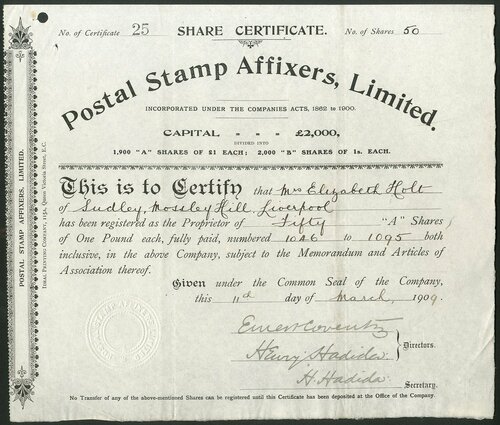 No. of Certificate 25 SHARE CERTIFICATE. No. of Shares 50
Postal Stamp Affixers, Limited.
INCORPORATED UNDER THE COMPANIES ACTS, 1862 to 1900.
CAPITAL - - - £2,000,
DIVIDED INTO
1,900 "A" SHARES OF £1 EACH; 2,000 "B" SHARES OF 1s. EACH.
This is to Certify that Mrs Elizabeth Holt
of Sudley, Mossley Hill, Liverpool
has been registered as the Proprietor of Fifty "A" Shares
of One Pound each, fully paid, numbered 1046 to 1095 both
inclusive, in the above Company, subject to the Memorandum and Articles of
Association thereof.
Given under the Common Seal of the Company,
this 11th day of March, 1909.
Ernest Coventry
Henry Hadida
Directors.
H. Hadida
Secretary.
No Transfer of any of the above-mentioned Shares can be registered until this Certificate has been deposited at the Office of the Company.
POSTAL STAMP AFFIXERS, LIMITED.
IDEAL PRINTING COMPANY, 112A, Queen Victoria Street, E.C.